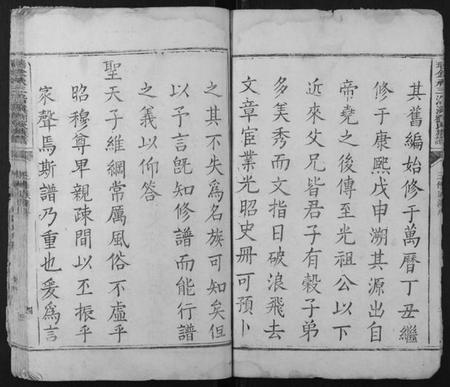 其舊編始修于萬曆丁丑繼
修于康熙戊申溯其源出自
帝堯之後傳至光祖公以下
近來父兄皆君子有穀子弟
多美秀而文指日破浪飛去
文章宦業光昭史冊可預卜
之其不失為名族可知矣但
以予言旣知修譜而能行譜
之義以仰答
聖天子維綱常厲風俗不虛乎
昭穆尊卑親疎間以丕振乎
家聲焉斯譜乃重也爰為言